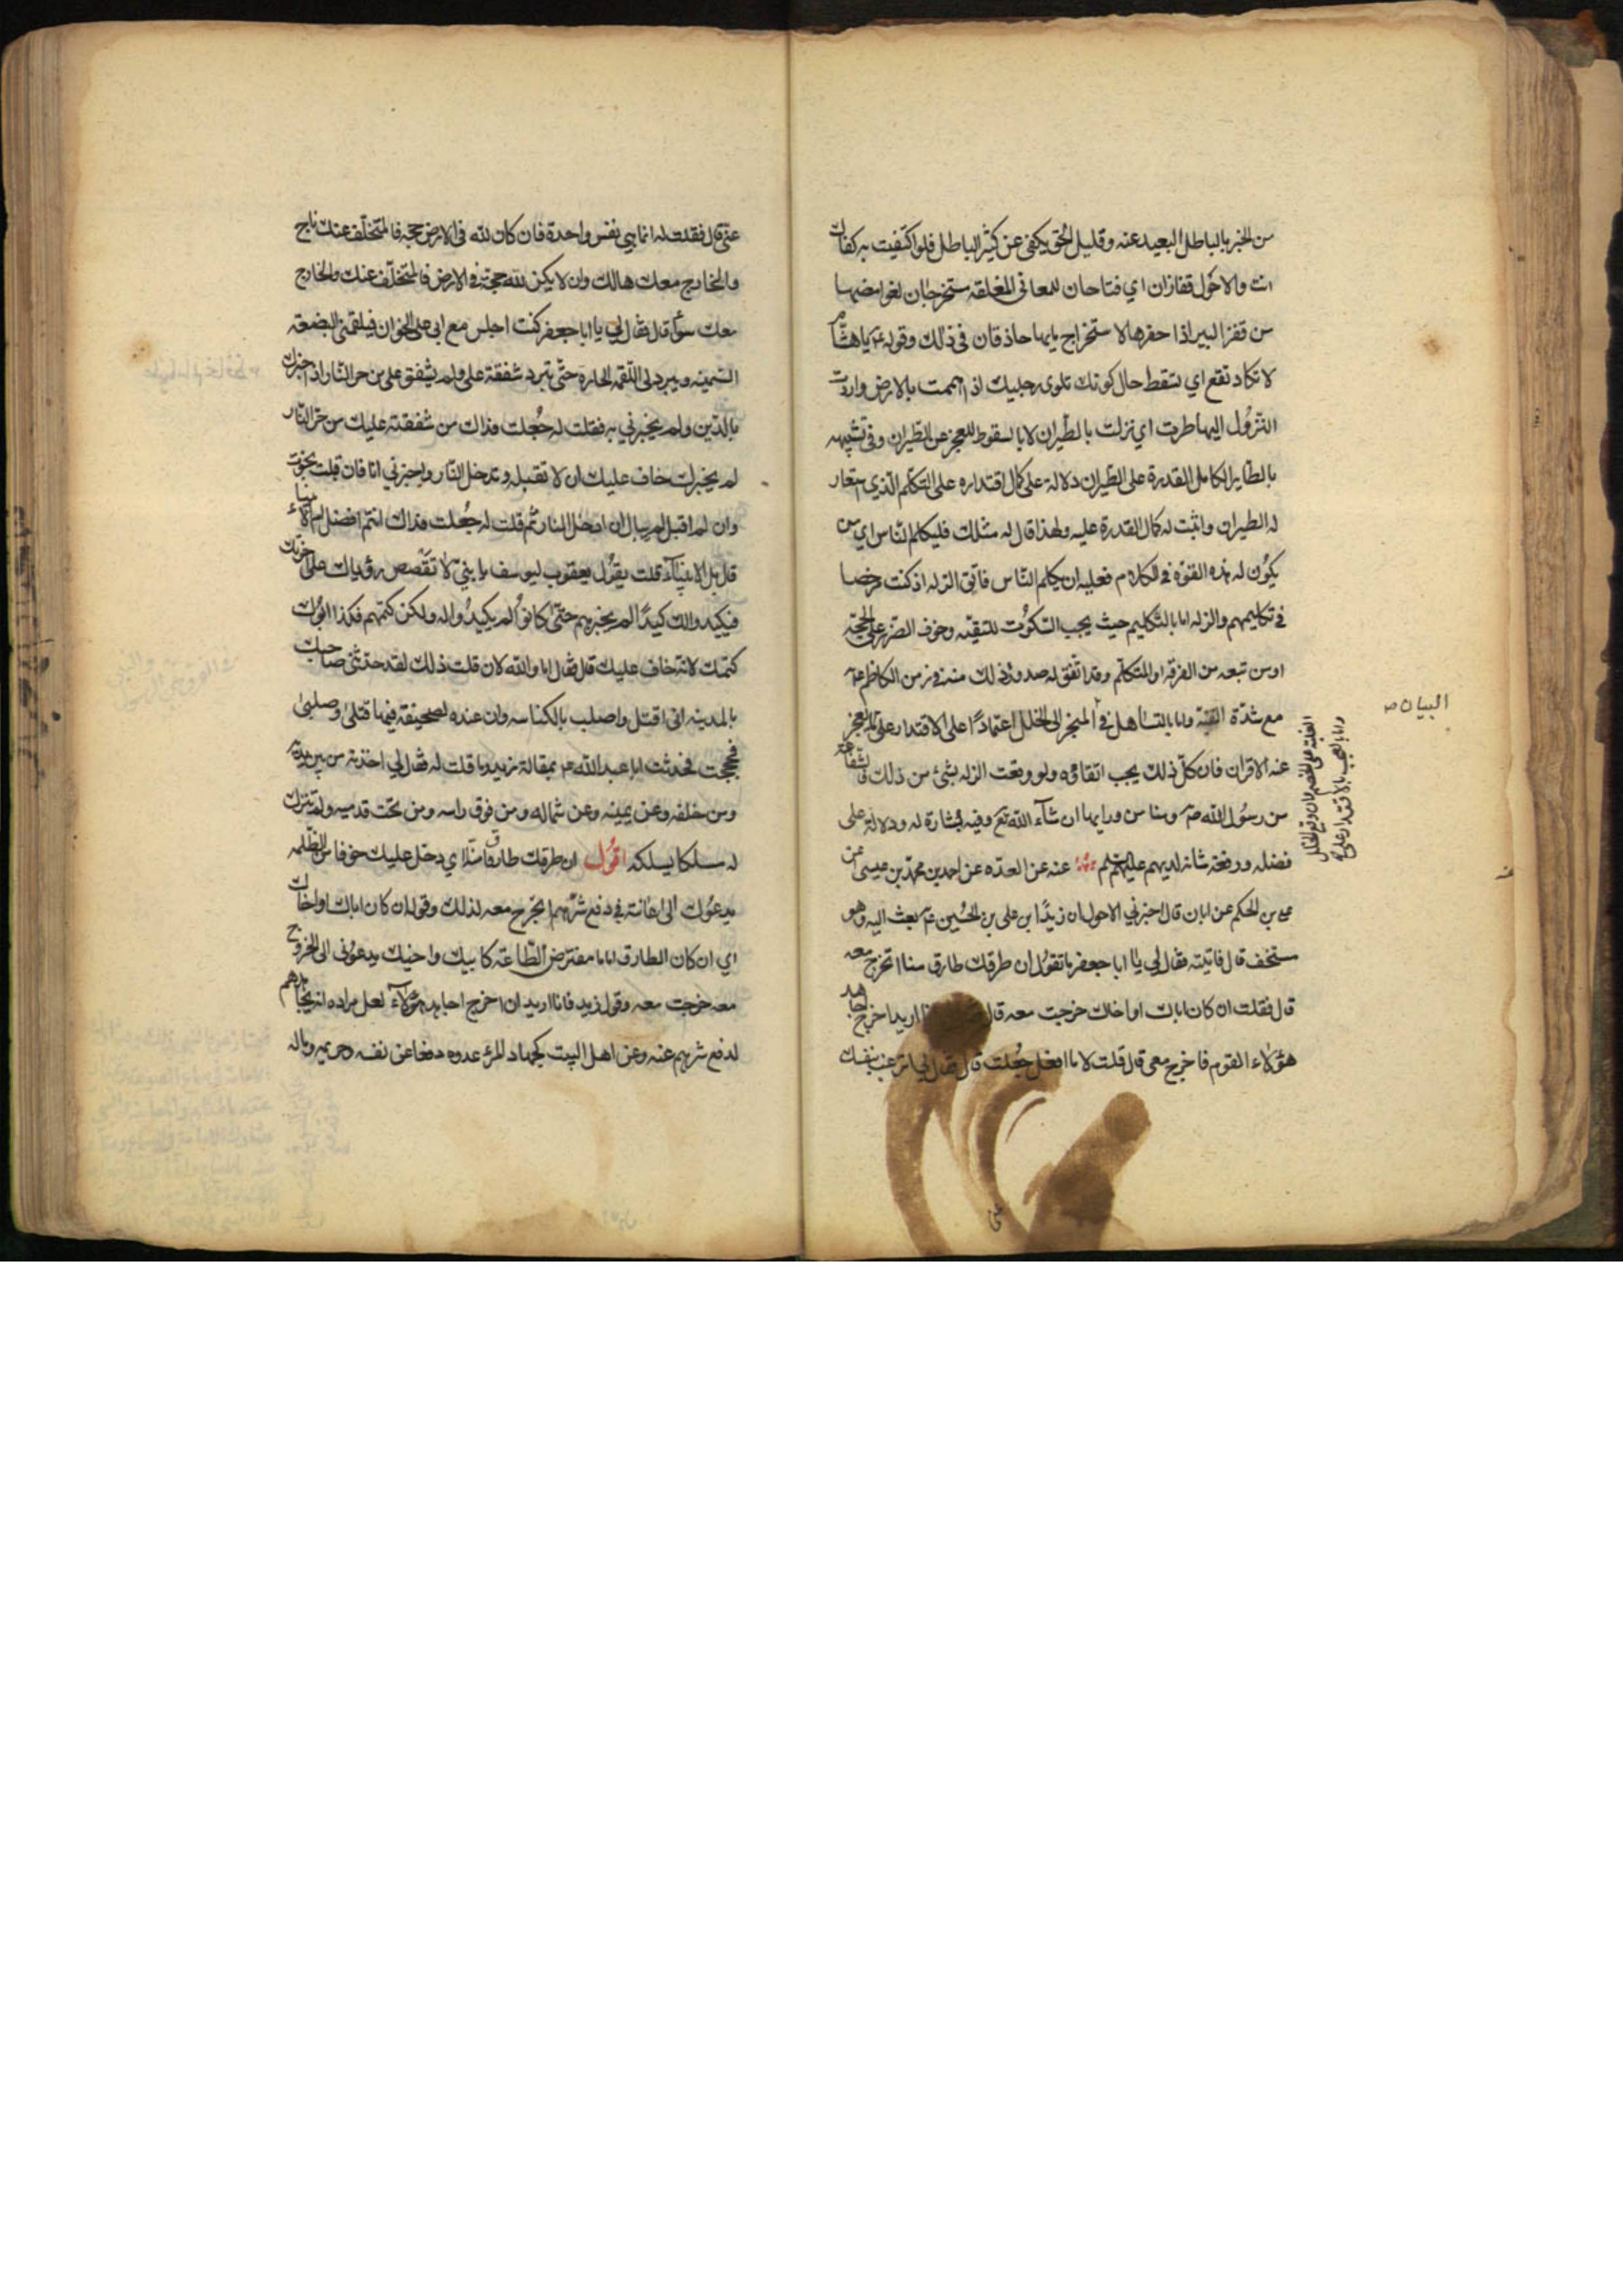 من الخبر بالباطل البعيد عنه وقليل الحق يكفى عن كثير الباطل فلو اكتفيت به كفاك
انت والاحول قفازان اي فتاحان للمعانى المغلقة ستخرجان لغوامضها
من قفز البير اذا حفرها لاستخراج مايها حاذقان فى ذلك وقوله ع يا هشام
لا تكاد تقع اي تسقط حال كونك تلوى رجليك اذا هممت بالارض واردت
النزول اليها طرت اي نزلت بالطيران لا بالسقوط للعجز عن الطيران وفى تشبيهه
بالطاير الكامل القدرة على الطيران دلالة على كمال اقتداره على التكلم الذى استعار
له الطيران واثبت له كمال القدرة عليه ولهذا قال له مثلك فليكلم الناس اي من
يكون له هذه القوة فى الكلام فعليه ان يكلم الناس فاتق الزلة اذ كنت مرخصا
فى تكليمهم والزلة اما بالتكليم حيث يجب السكوت للتقيه وخوف الضرر على الحجة
او من تبعه من الفرقة او المتكلم وقد اتفق له صدور ذلك منه فى زمن الكاظم ع
مع شدة التقية واما بالتساهل فى المنجر الى الخلل اعتمادا على الاقتدار على ما يعجز
عنه الاقران فان كل ذلك يجب اتقاؤه ولو وقعت الزلة بشئ من ذلك فالشفاعة
من رسول الله ص ومنا من ورايها ان شاء الله تع وفيه بشارة له ودلالة على
فضله ورفعة شانه لديهم عليهم عنه عن العدة عن احمد بن محمد بن عيسى عن
على بن الحكم عن ابان قال اخبرني الاحول ان زيدا ابن على بن الحسين ع بعث اليه وهو
مستخف قال فاتيته فقال لي يا ابا جعفر ما تقول ان طرقك طارق منا اتخرج معه
قال فقلت ان كان اباك او اخاك خرجت معه قال اريد اخرج اجاهد
هؤلاء القوم فاخرج معى قال قلت لا ما افعل جعلت قال فقال لي اترغب بنفسك
البيان ص
عنى قال فقلت له انما هي نفس واحدة فان كان لله فى الارض حجة فالمتخلف عنك ناج
والخارج معك هالك وان لا يكن لله حجة فى الارض فالمتخلف عنك والخارج
معك سواء قال فقال لي يا ابا جعفر كنت اجلس مع ابى على الخوان فيلقمنى البضعة
السمينة ويبرد لى اللقمة الحارة حتى تبرد شفقة على ولم يشفق على من حر النار اذ اخبرك
بالدين ولم يخبرني به فقلت له جعلت فداك من شفقته عليك من حر النار
لم يخبرك خاف عليك ان لا تقبله وتدخل النار واخبرني انا فان قبلت نجوت
وان لم اقبل لم يبال ان ادخل النار ثم قلت له جعلت فداك انتم افضل ام الانبياء
قال بل الانبياء قلت يقول يعقوب ليوسف يا بنى لا تقصص رؤياك على اخوتك
فيكيدوا لك كيدا لم يخبرهم حتى كانوا لم يكيدوا له ولكن كتمهم فكذا ابوك
كتمك لانه خاف عليك قال فقال اما والله لان قلت ذلك لقد حدثنى صاحبك
بالمدينه انى اقتل واصلب بالكناسه وان عنده لصحيفة فيها قتلى وصلبى
فحججت فحدثت ابا عبد الله ع بمقالة زيد وما قلت له فقال لي اخذته من بين يديه
ومن خلفه وعن يمينه وعن شماله ومن فوق راسه ومن تحت قدميه ولم تترك
له مسلكا يسلكه اقول ان طرقك طارق منا اي دخل عليك خوفا من الظلمه
يدعوك الى اعانته فى دفع شرهم اتخرج معه لذلك وقوله ان كان اباك او اخاك
اي ان كان الطارق اماما مفترض الطاعة كابيك واخيك يدعونى الى الخروج
معه خرجت معه وقول زيد فانا اريد ان اخرج اجاهد هؤلاء لعل مراده انه يجاهدهم
لدفع شرهم عنه وعن اهل البيت كجهاد المرء عدوه دفعا عن نفسه وحريمه وماله